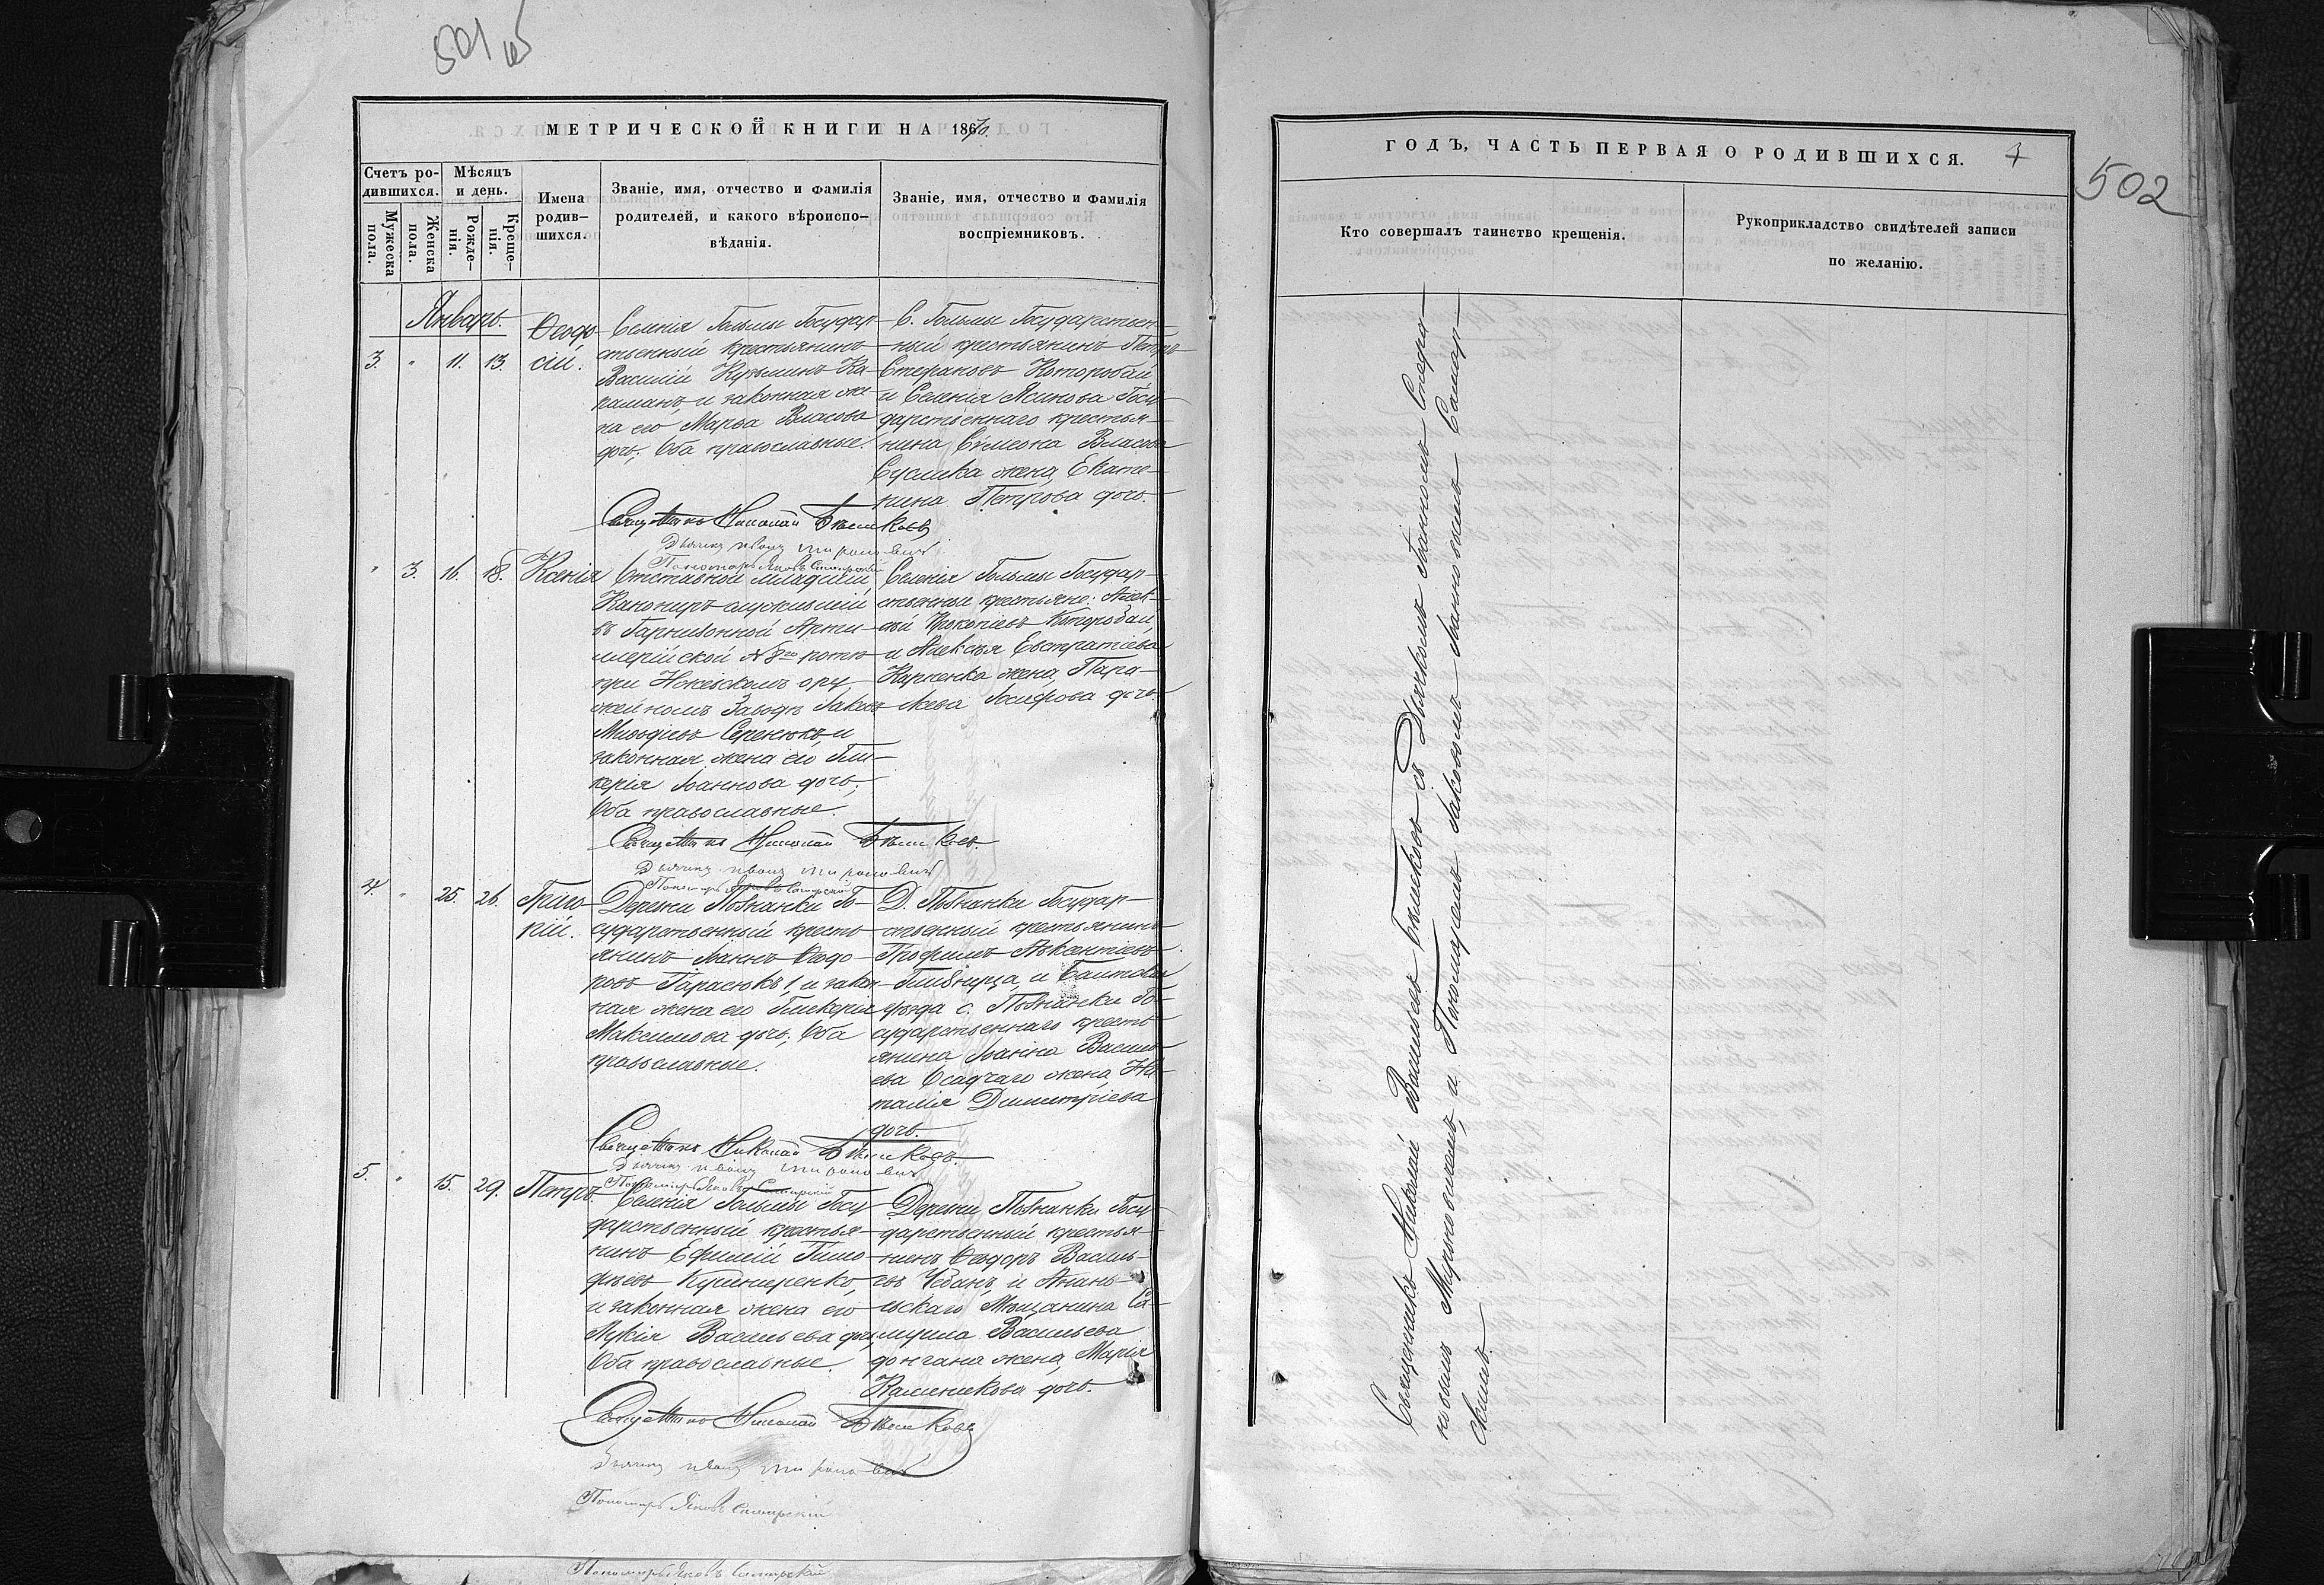 501 об
МЕТРИЧЕСКОЙ КНИГИ НА 1870.
Счетъ ро-
дившихся.
Мужеска
пола.
Женска
пола.
Мѣсяцъ
и день.
Рожде-
нія.
Креще-
нія.
Имена
родив-
шихся.
Званіе, имя, отчество и фамилія
родителей, и какого вѣроиспо-
вѣданія.
Званіе, имя, отчество и фамилія
воспріемниковъ.
Январь.
3. " 11. 13.
Ѳеодо-
сій.
Селенія Гольмы Государ-
ственный крестьянинъ
Василій Кузьминъ Ка-
раманъ, и законная же-
на его Марѳа Власова
дочь; Оба православные.
С. Гольмы Государствен-
ный крестьянинъ Петръ
Стефановъ Которобай
и Селенія Ясинова Госу-
дарственнаго крестья-
нина Симеона Власова
Суслика жена, Екате-
рина Петрова дочь.
Священникъ Николай Бѣлисковъ
Дьячекъ Иванъ
Пономарь Яковъ Самарскій
" 3. 16. 18.
Ксенія
Отставной младшій
Канонеръ служившій
въ Гарнизонной Арти-
лерійской №8го ротѣ
при Ижевскомъ ору-
жейномъ Заводѣ Іаковъ
Миѳодіевъ Серенюкъ, и
законная жена его Гли-
керія Іоаннова дочь;
Оба православные.
Селенія Гольмы Государ-
ственные крестьяне: Алек-
сѣй Прокопіевъ Которобай,
и Алексѣя Евстратіева
Карпенка жена, Пара-
скева Іосифова дочь.
Священникъ Николай Бѣлисковъ.
Дьячекъ Иванъ
Пономарь Яковъ Самарскій
4. " 25. 26.
Григо-
рій.
Деревни Познанки Го-
сударственный кресть-
янинъ Іоаннъ Ѳеодо-
ровъ Гарасюкъ 1, и закон-
ная жена его Гликерія
Максимова дочь; Оба
православные.
Д. Познанки Государ-
ственный крестьянинъ
Трофимъ Авксентіевъ
Пивница, и Балтскаго
уѣзда с. Познанки Го-
сударственнаго кресть-
янина Іоанна Василь-
ева Осадчаго жена, На-
талія Димитріева
дочь.
Священникъ Николай Бѣлисковъ.
Дьячекъ Иванъ
Пономарь Яковъ Самарскій
5. " 15. 29.
Петръ.
Селенія Гольмы Госу-
дарственный крестья-
нинъ Ефимій Тимо-
фѣевъ Кушнеренко,
и законная жена его
Лукія Васильева дочь,
Оба православные.
Деревни Познанки Госу-
дарственный крестья-
нинъ Ѳеодоръ Василь-
евъ Чебанъ, и Анань-
евскаго Мѣщанина Са-
муила Васильева
донгана жена, Марія
Каленикова дочь.
Священникъ Николай Бѣлисковъ
Дьячекъ Иванъ
Пономарь Яковъ Самарскій
Пономарь Яковъ Самарскій
ГОДЪ, ЧАСТЬ ПЕРВАЯ О РОДИВШИХСЯ.
502
Кто совершалъ таинство крещенія.
Рукоприкладство свидѣтелей записи
по желанію.
Священникъ Николай Васильевъ Бѣлисковъ съ Дьячкомъ Іоанномъ Стефа-
новымъ и Пономаремъ Іаковомъ Іоанновымъ Самар-
скимъ.